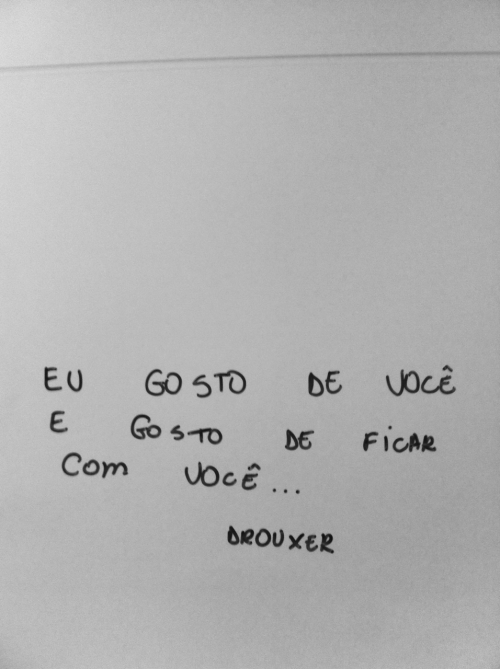 EU GOSTO DE VOCÊ
E GOSTO DE FiCAR
Com VOCÊ...
DROUXER